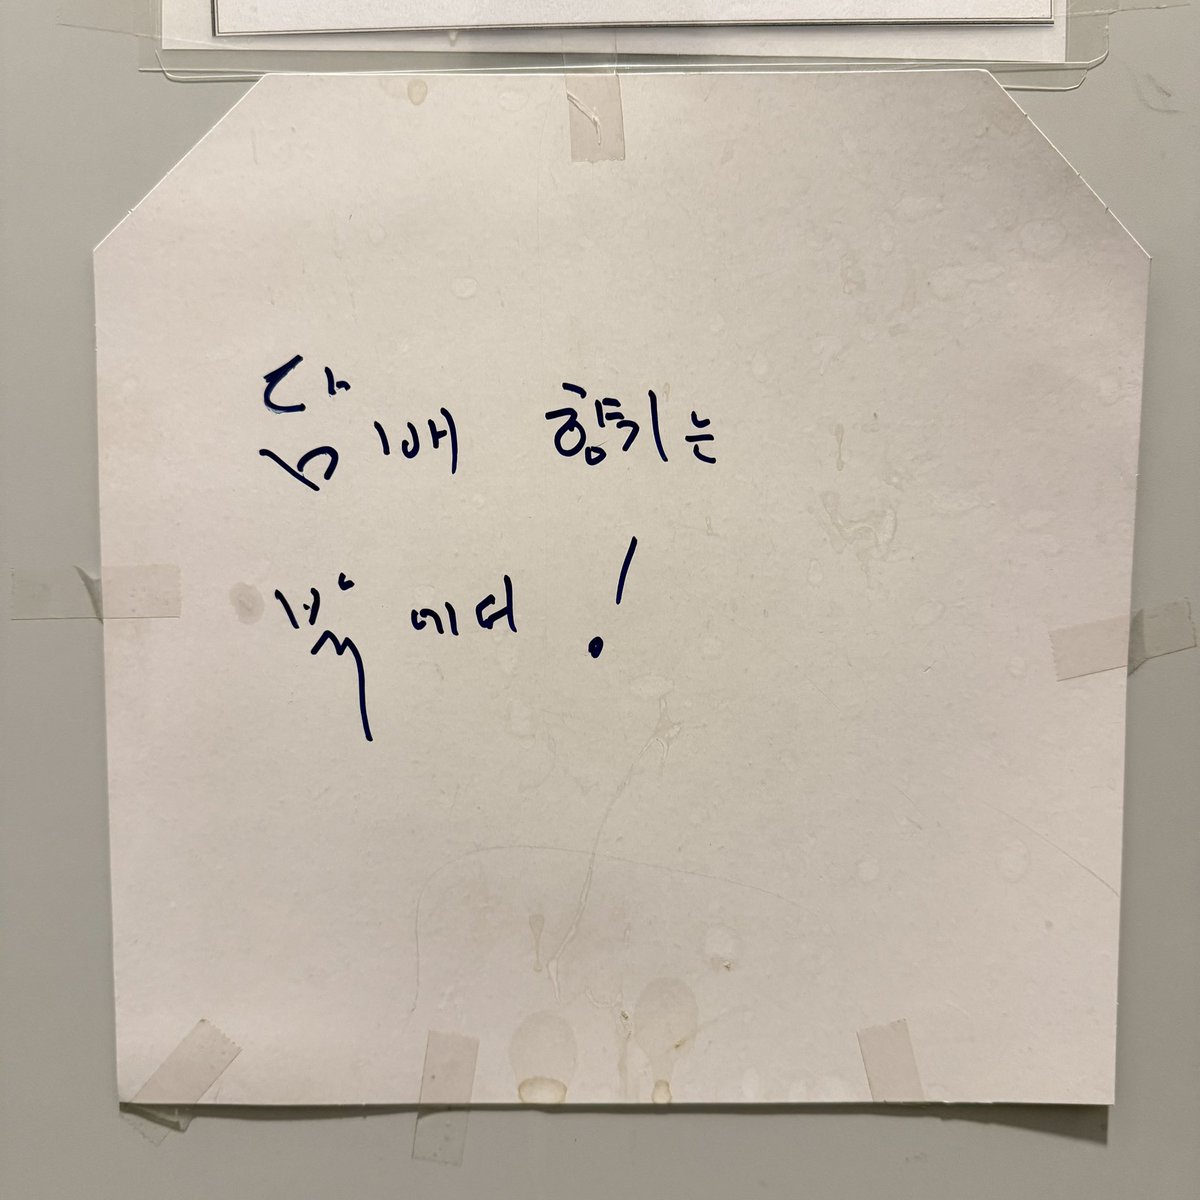 담배 향기는
밖에서!